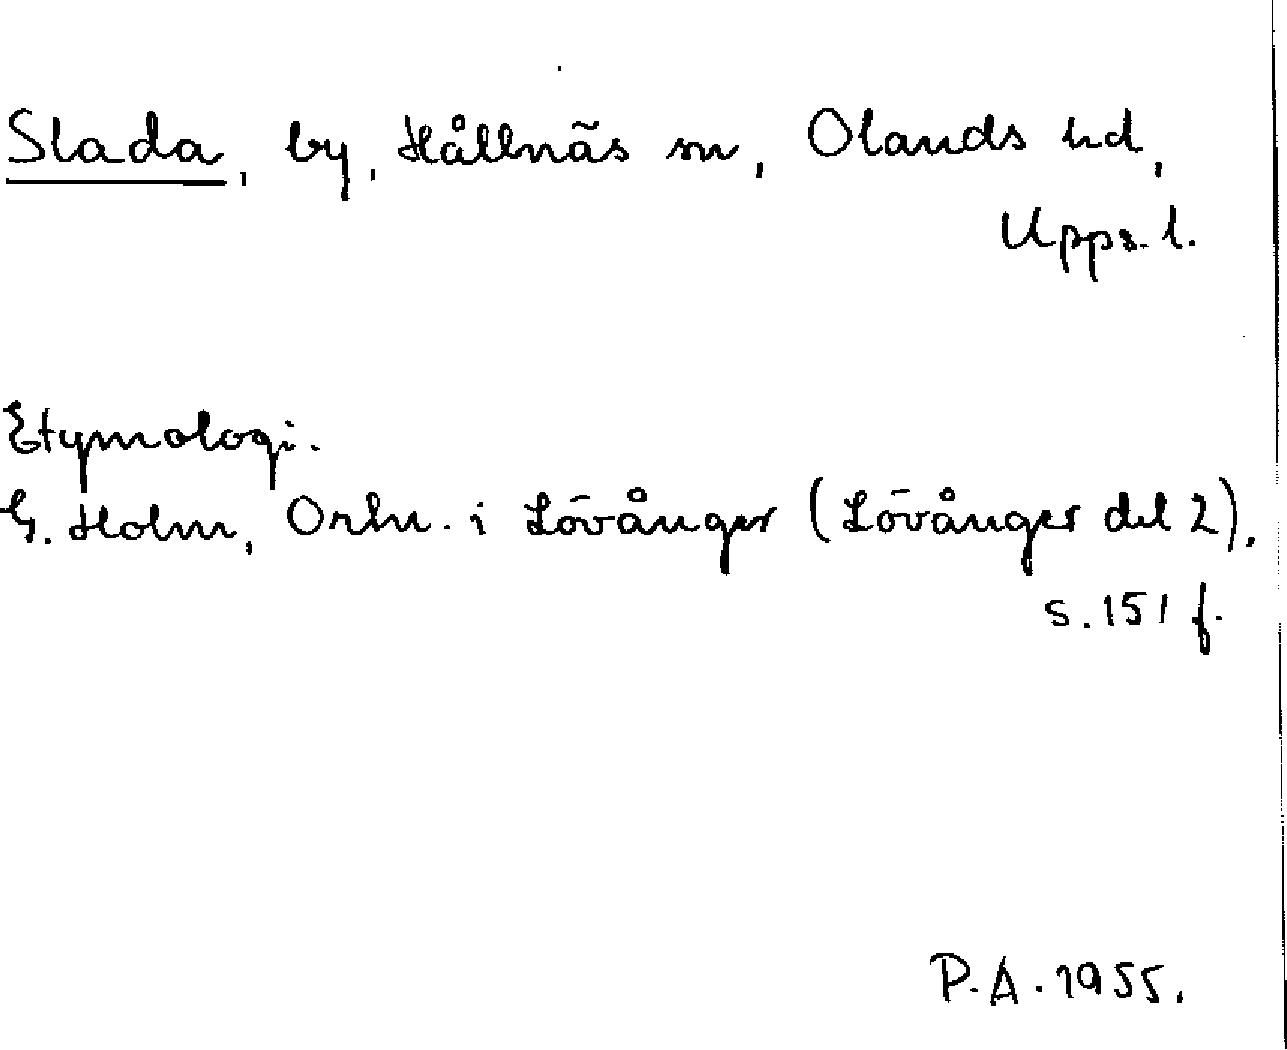 Slada, by, Hållnäs sn, Olands hd,
Upps. l.
Etymologi.
G. Holm, Ortn. i Lövånger (Lövånger del 2),
s. 151 f.
P. A. 1955.